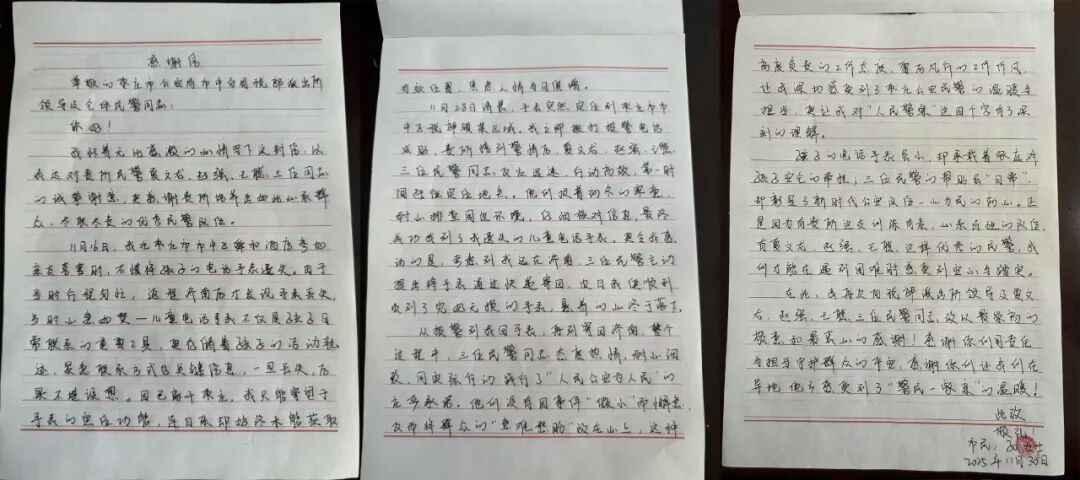 感谢信
尊敬的枣庄市公安局市中分局税郭派出所
领导及全体民警同志：
你好！
我怀着无比感激的心情写下这封信，以
表达对贵所民警夏文龙、赵强、王聪三位同志
的诚挚谢意，更感谢贵所培养出如此心系群
众、尽职尽责的优秀民警队伍。
11月15日，我在枣庄市市中区 酒店参加
亲友喜宴时，不慎将孩子的电话手表遗失。由于
当时行程匆忙，返程济南后才发现手表丢失，
当时心急如焚—儿童电话手表不仅是孩子日
常联系的重要工具，更存储着孩子的活动轨
迹、家长联系方式等关键信息，一旦丢失，后
果不堪设想。因已离开枣庄，我只能寄望于
手表的定位功能，连日来却始终未能获取
有效位置，焦虑心情与日俱增。
11月28日清晨，手表突然定位到枣庄市市
中区税郭镇某区域。我立即拨打报警电话
求助，贵所接到警情后，夏文龙、赵强、王聪
三位民警同志反应迅速、行动高效，第一时
间赶往定位地点。他们顶着初冬的寒意，
耐心排查周边环境，仔细核对信息，最终
成功找到了我遗失的儿童电话手表。更令我感
动的是，考虑到我远在济南，三位民警主动
提出将手表通过快递寄回，次日我便顺利
收到了完好无损的手表，悬着的心终于落下。
从报警到找回手表，再到寄回济南，整个
过程中，三位民警同志态度热情、耐心细
致，用实际行动践行了“人民公安为人民”的
庄严承诺。他们没有因事件“微小”而懈怠，
反而将群众的“急难愁盼”放在心上，这种
高度负责的工作态度、雷厉风行的工作作风，
让我深切感受到了枣庄公安民警的温暖与
担当，更让我对“人民警察”这四个字有了深
刻的理解。
孩子的电话手表虽小，却承载着家庭对
孩子安全的牵挂；三位民警的帮助虽“日常”，
却彰显了新时代公安队伍一心为民的初心。正
是因为有贵所这支训练有素、心系百姓的队伍，
有夏文龙、赵强、王聪这样优秀的民警，我
们才能在遇到困难时感受到安心与踏实。
在此，我再次向税郭派出所领导及夏文
龙、赵强、王聪三位民警同志，致以最崇高的
敬意和最衷心的感谢！感谢你们用责任
与担当守护群众的平安，感谢你们让我们在
异地他乡感受到了“警民一家亲”的温暖！
此致
敬礼！
市民：
2025年11月30日